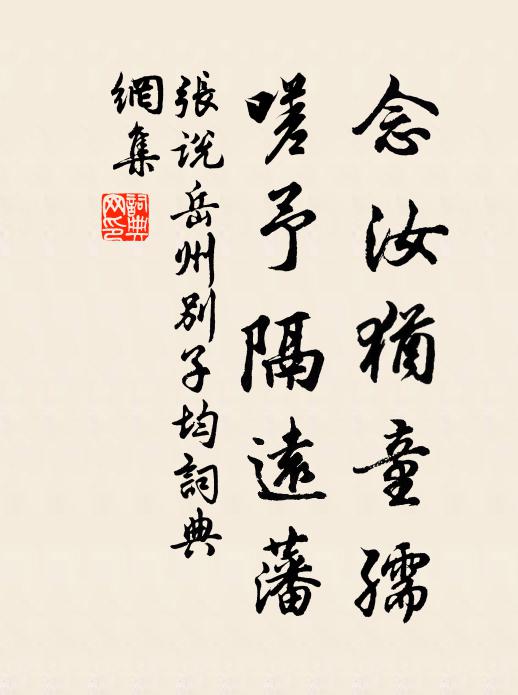 念汝猶童孺
嗟予隔遠藩
張説岳州別子均詞典
網集
詞典
网印